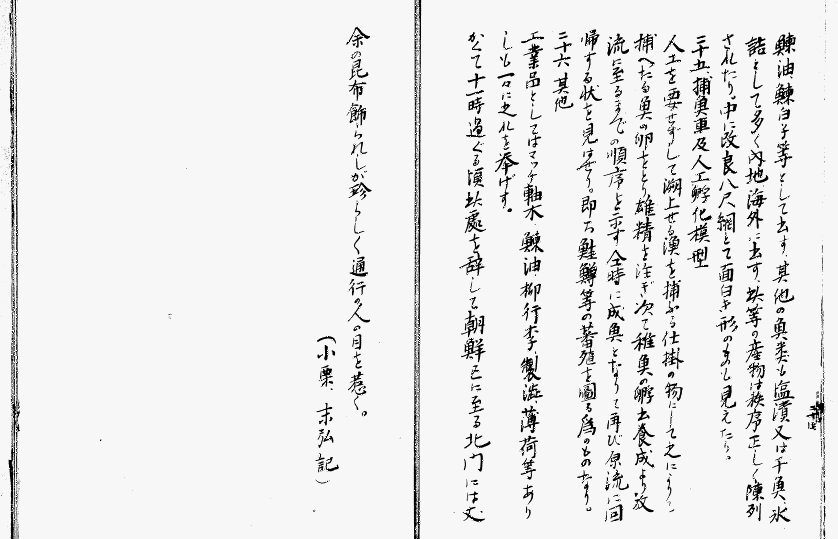 鰊油鰊白子等として出す、其他の魚類も塩漬又は干魚氷
詰として多く内地海外に出す、此等の産物は秩序正しく陳列
されたり。中に改良八尺網とて面白き形のまも見えたり。
二十五、捕魚車及人工孵化模型
人工を要せずして溯上せる漁を捕ふる仕掛の物にして之により
捕へたる魚の卵をとり雄精を注ぎ次て稚魚の孵出養成より放
流に至るまでの順序を示す仝時に成魚となりて再び原流に回
帰する状を見はせり。即ち鮭鱒等の蕃殖を圖る為のものなり。
二十六其他
工業品としてはマッチ軸木、鰊油、柳行李、製澁、薄荷等あり
しも一々に之れを挙げず。
かくて十一時過ぐる頃此處を辞して朝鮮豆に至る北門には丈
余の昆布飾られしが珍らしく通行の人の目を惹く。
(小栗、末弘記)